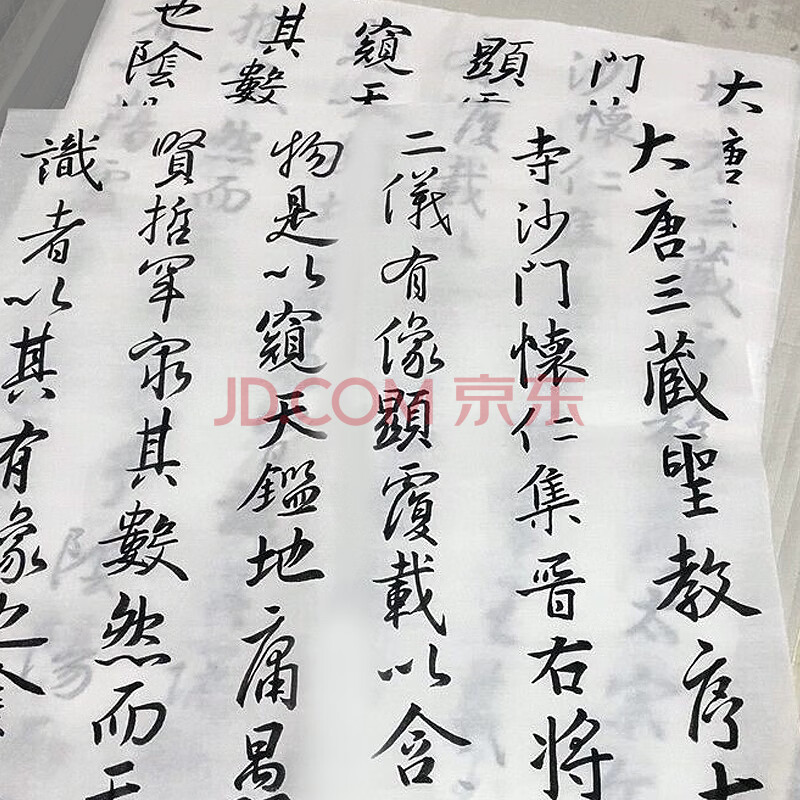 大唐三藏聖教序太
寺沙門懷仁集晋右将
二儀有像顯覆載以含
物是以窺天鑑地庸愚
賢哲罕窮其數然而天
識者以其有象也
大唐三
門
顯覆
窺天
其數
也陰
JD.COM 京东